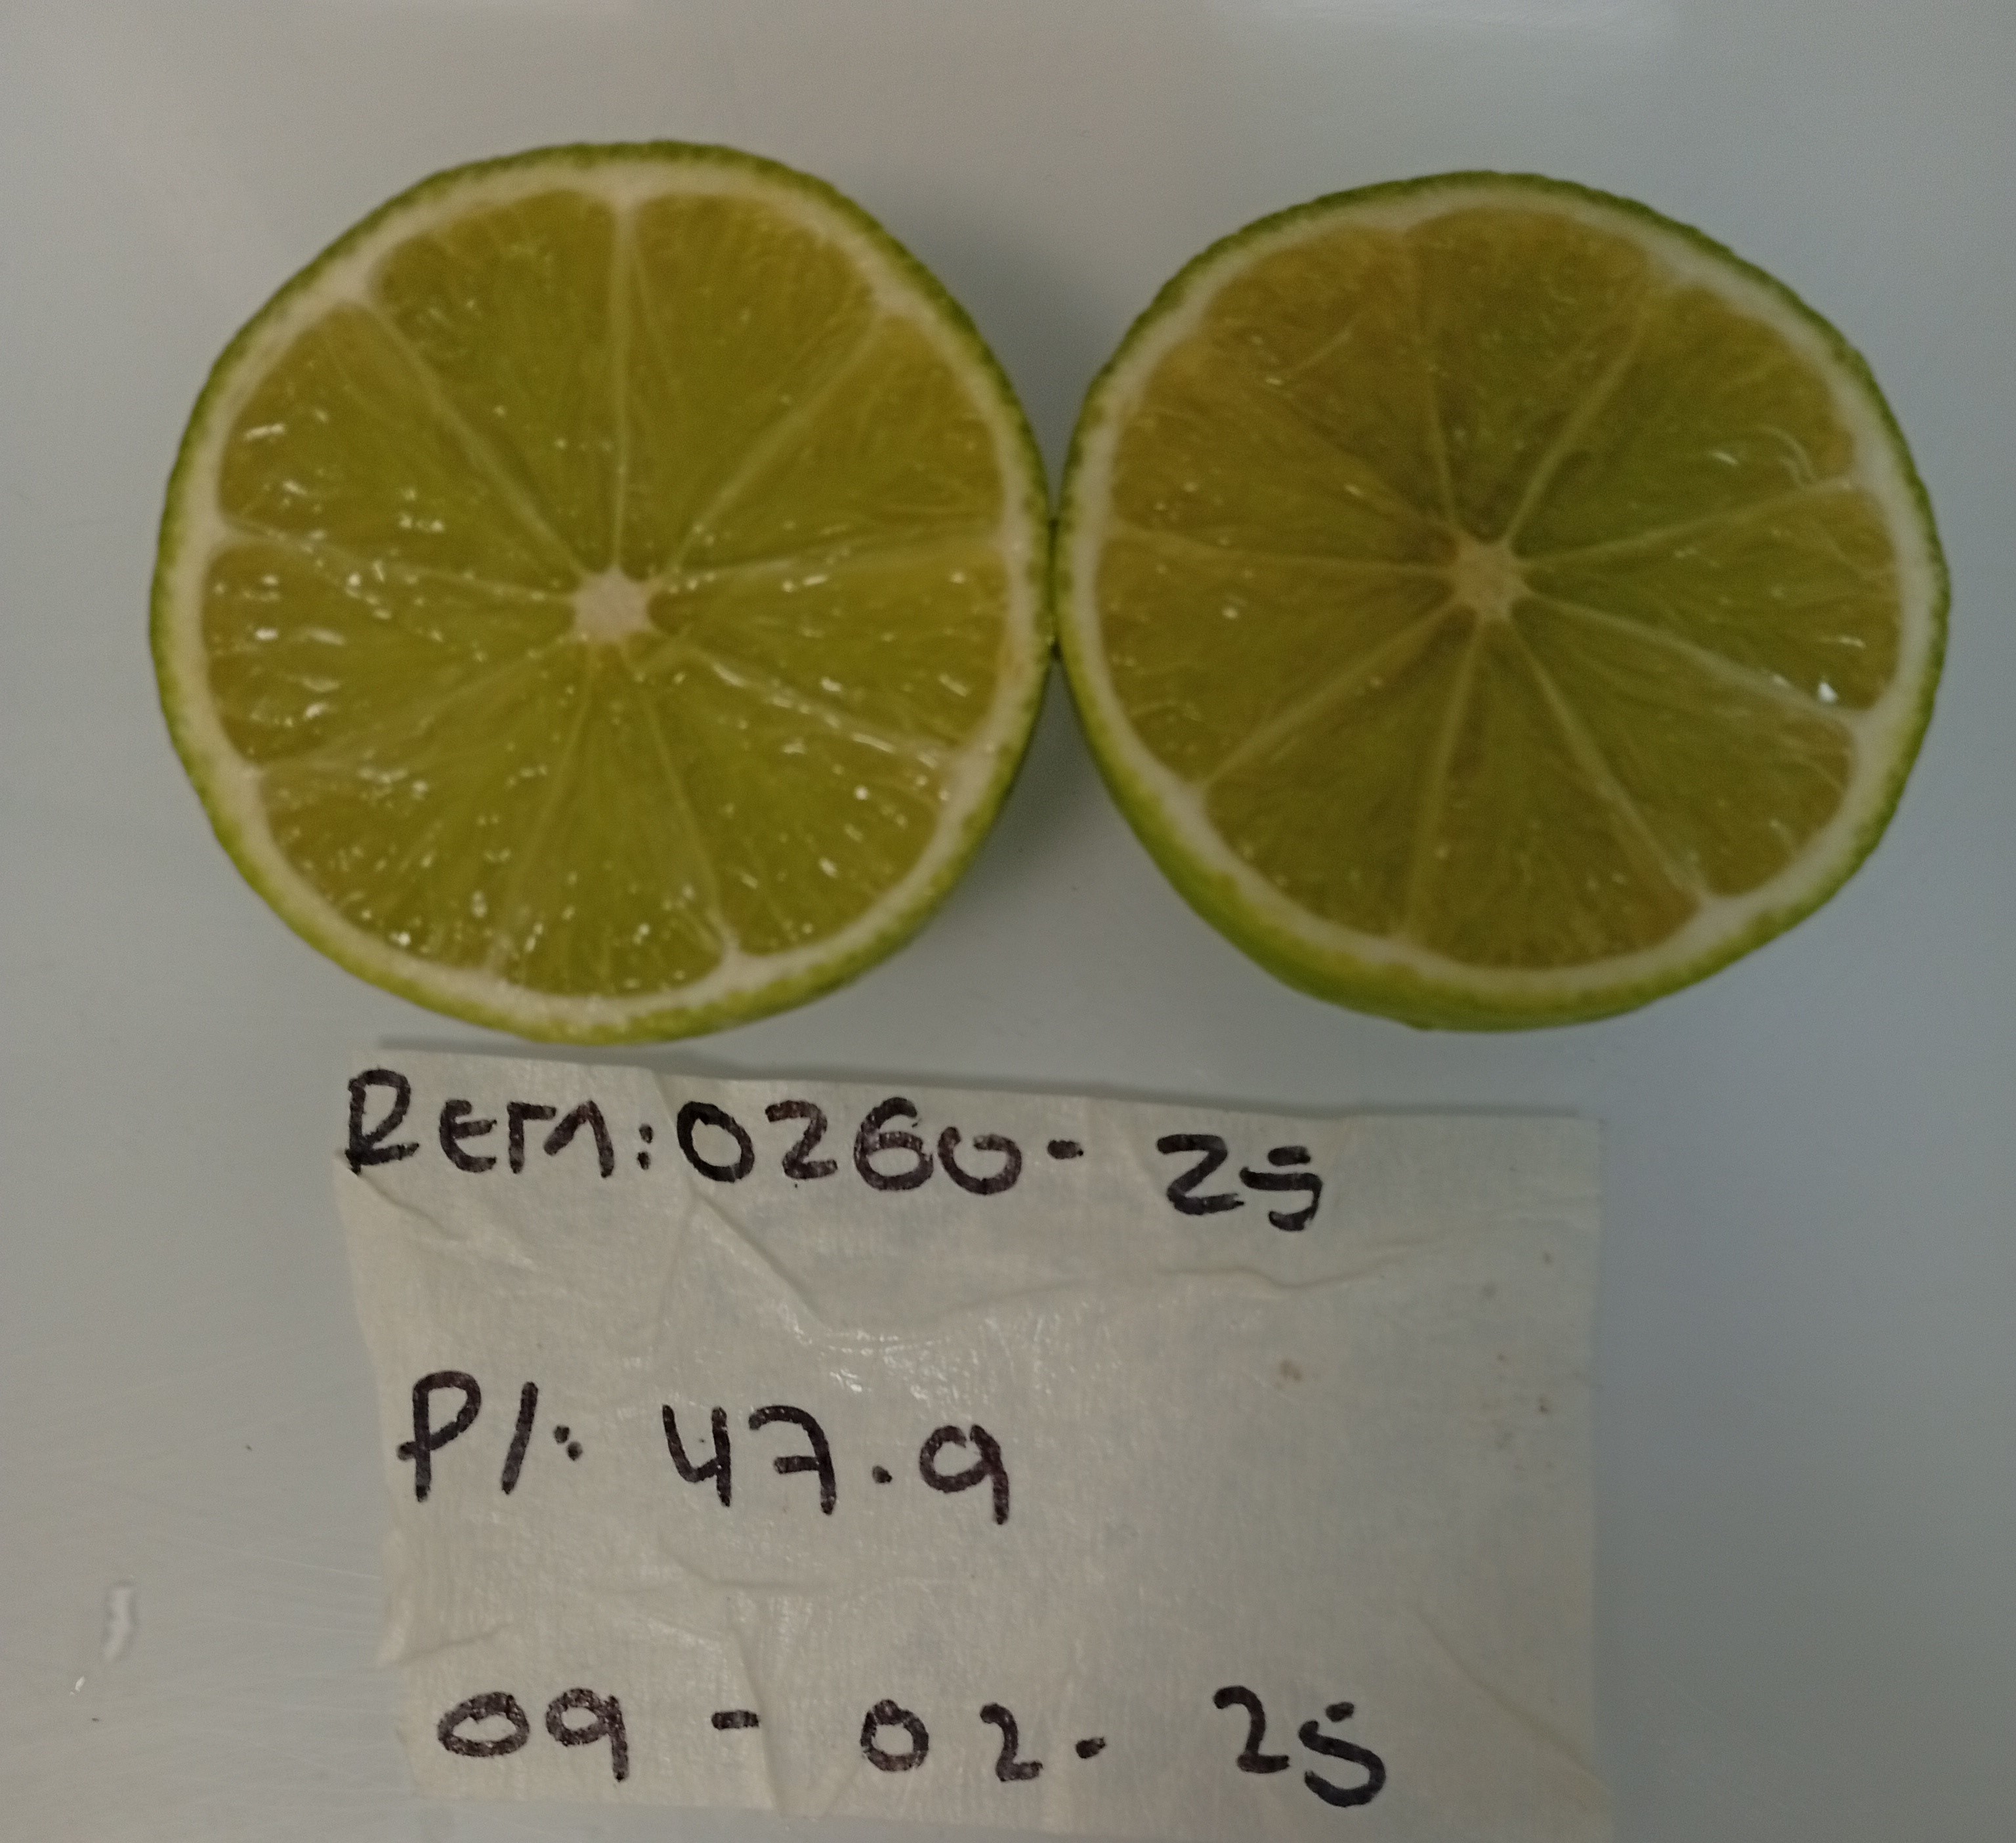 REM: 0260- 25
P/: 47.9
09 - 02. 25